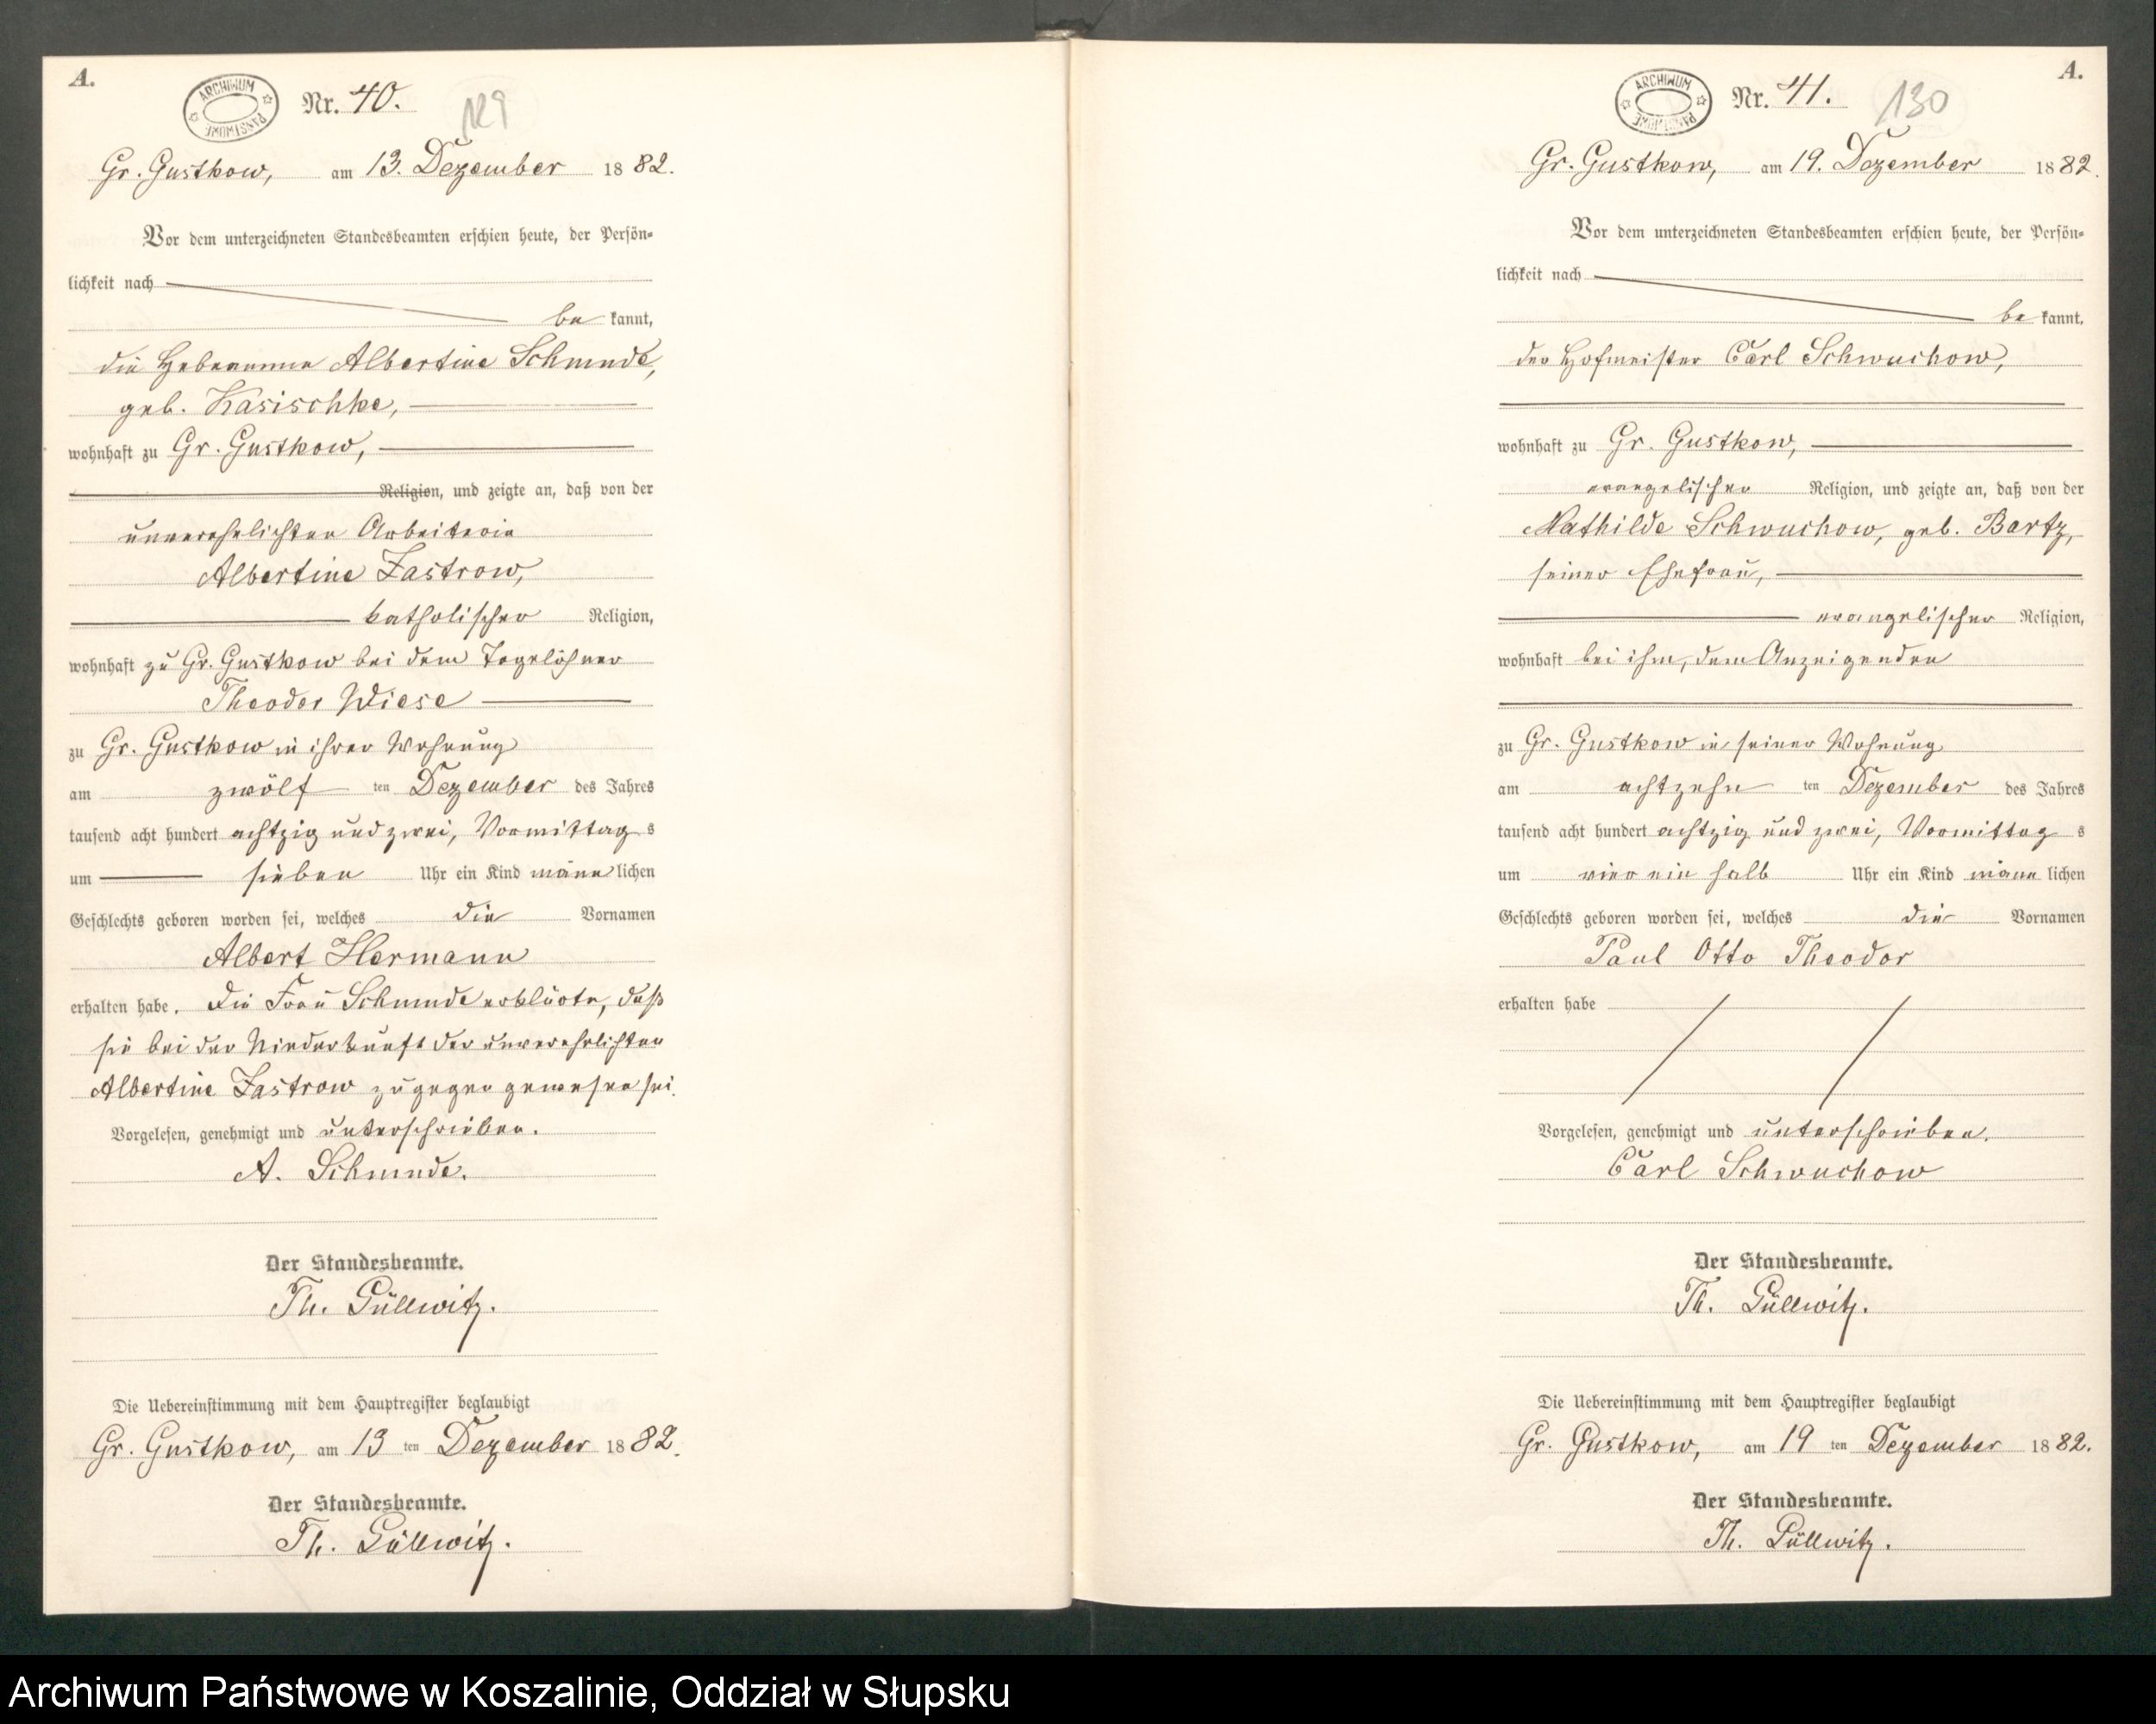 A.
ARCHIWUM PAŃSTWOWE
Nr. 40.
129
Gr. Gustkow, am 13. Dezember 1882.
Vor dem unterzeichneten Standesbeamten erschien heute, der Persön-
lichkeit nach
be kannt,
die Hebeamme Albertine Schmude,
geb. Kasischke,
wohnhaft zu Gr. Gustkow,
Religion, und zeigte an, daß von der
unverehelichten Arbeiterin
Albertine Zastrow,
katholischer Religion,
wohnhaft zu Gr. Gustkow bei dem Tagelöhner
Theodor Wiese
zu Gr. Gustkow in ihrer Wohnung
am zwölf ten Dezember des Jahres
tausend acht hundert achtzig und zwei, Vormittag s
um sieben Uhr ein Kind männ lichen
Geschlechts geboren worden sei, welches die Vornamen
Albert Hermann
erhalten habe. Die Frau Schmude erklärte, daß
sie bei der Niederkunft der unverehelichten
Albertine Zastrow zugegen gewesen sei.
Vorgelesen, genehmigt und unterschrieben.
A. Schmude.
Der Standesbeamte.
Th. Püllwitz.
Die Uebereinstimmung mit dem Hauptregister beglaubigt
Gr. Gustkow, am 13 ten Dezember 1882.
Der Standesbeamte.
Th. Püllwitz.
A.
ARCHIWUM PAŃSTWOWE
Nr. 41.
130
Gr. Gustkow, am 19. Dezember 1882.
Vor dem unterzeichneten Standesbeamten erschien heute, der Persön-
lichkeit nach
be kannt,
der Hofmeister Carl Schwuchow,
wohnhaft zu Gr. Gustkow,
evangelischer Religion, und zeigte an, daß von der
Mathilde Schwuchow, geb. Bartz,
seiner Ehefrau,
evangelischer Religion,
wohnhaft bei ihm, dem Anzeigenden
zu Gr. Gustkow in seiner Wohnung
am achtzehn ten Dezember des Jahres
tausend acht hundert achtzig und zwei, Vormittag s
um vier ein halb Uhr ein Kind männ lichen
Geschlechts geboren worden sei, welches die Vornamen
Paul Otto Theodor
erhalten habe
Vorgelesen, genehmigt und unterschrieben.
Carl Schwuchow
Der Standesbeamte.
Th. Püllwitz.
Die Uebereinstimmung mit dem Hauptregister beglaubigt
Gr. Gustkow, am 19 ten Dezember 1882.
Der Standesbeamte.
Th. Püllwitz.
Archiwum Państwowe w Koszalinie, Oddział w Słupsku